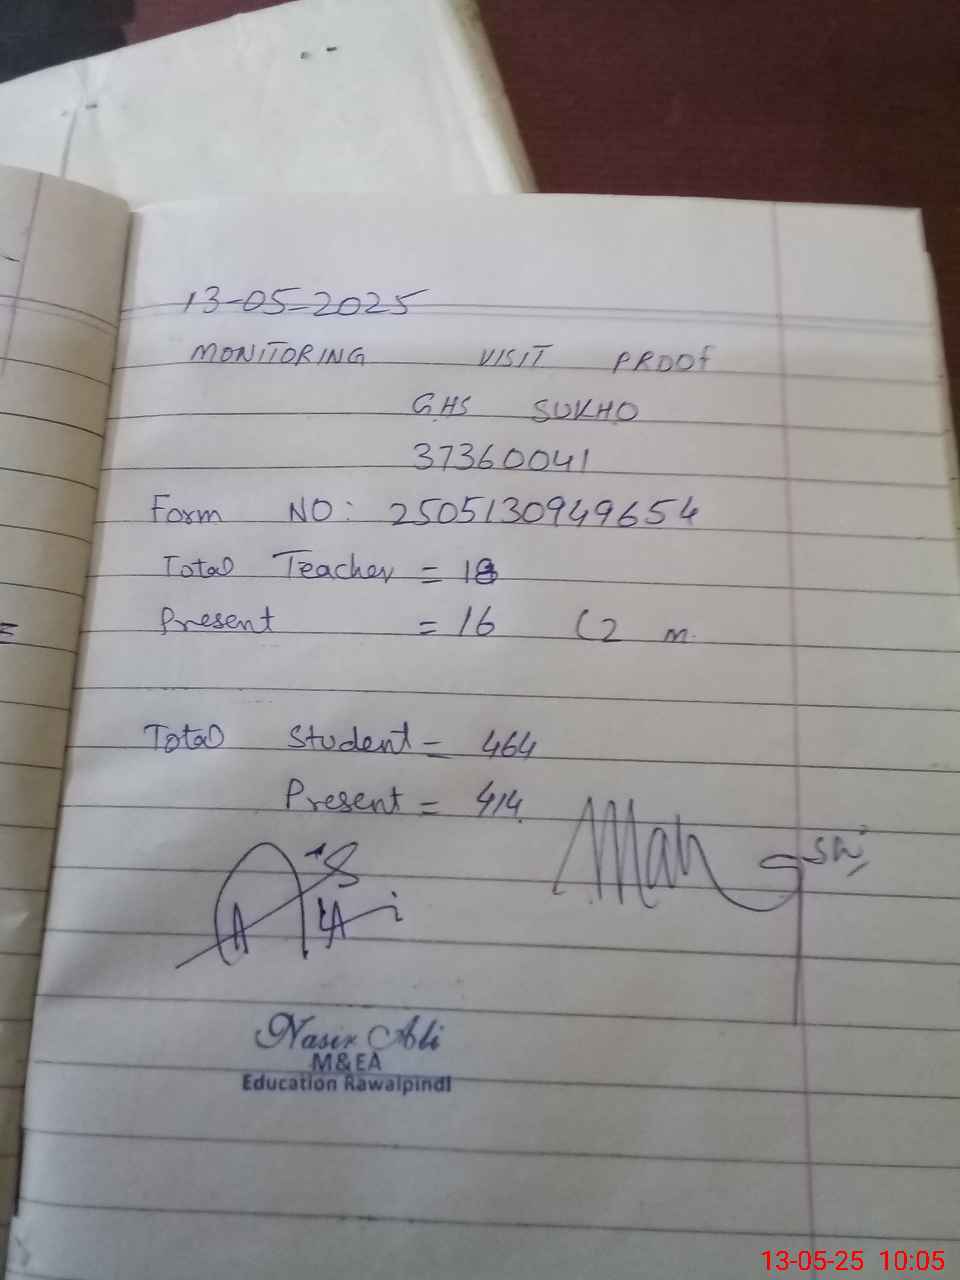 13-05-2025
MONITORING VISIT PROOF
GHS SUKHO
37360041
Form NO: 2505130949654
Total Teacher = 18
Present = 16 (2 m.
Total Student = 464
Present = 414
Nasir Ali
M&EA
Education Rawalpindi
13-05-25 10:05